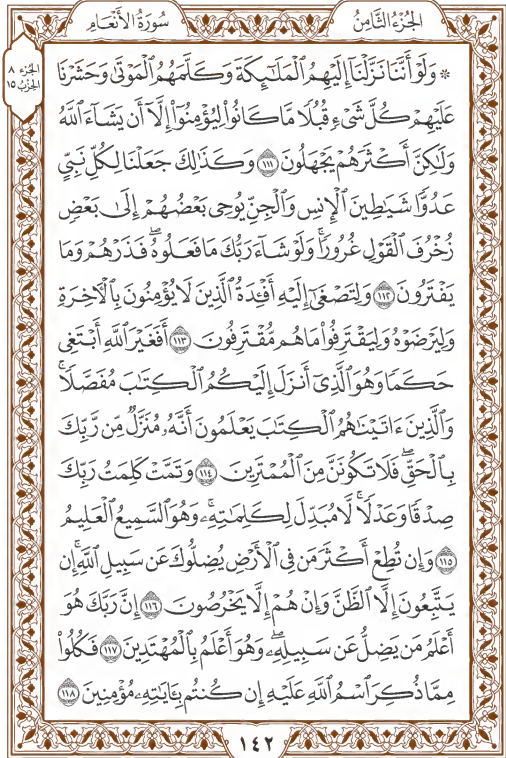 الجُزْءُ الثَّامِنُ
سُورَةُ الأَنْعَامِ
الجزء ٨
الحزب ١٥
۞ وَلَوْ أَنَّنَا نَزَّلْنَآ إِلَيْهِمُ ٱلْمَلَٰٓئِكَةَ وَكَلَّمَهُمُ ٱلْمَوْتَىٰ وَحَشَرْنَا
عَلَيْهِمْ كُلَّ شَىْءٍ قُبُلًا مَّا كَانُوا۟ لِيُؤْمِنُوٓا۟ إِلَّآ أَن يَشَآءَ ٱللَّهُ
وَلَٰكِنَّ أَكْثَرَهُمْ يَجْهَلُونَ ۝١١١ وَكَذَٰلِكَ جَعَلْنَا لِكُلِّ نَبِىٍّ
عَدُوًّا شَيَٰطِينَ ٱلْإِنسِ وَٱلْجِنِّ يُوحِى بَعْضُهُمْ إِلَىٰ بَعْضٍ
زُخْرُفَ ٱلْقَوْلِ غُرُورًا ۚ وَلَوْ شَآءَ رَبُّكَ مَا فَعَلُوهُ ۖ فَذَرْهُمْ وَمَا
يَفْتَرُونَ ۝١١٢ وَلِتَصْغَىٰٓ إِلَيْهِ أَفْـِٔدَةُ ٱلَّذِينَ لَا يُؤْمِنُونَ بِٱلْءَاخِرَةِ
وَلِيَرْضَوْهُ وَلِيَقْتَرِفُوا۟ مَا هُم مُّقْتَرِفُونَ ۝١١٣ أَفَغَيْرَ ٱللَّهِ أَبْتَغِى
حَكَمًا وَهُوَ ٱلَّذِىٓ أَنزَلَ إِلَيْكُمُ ٱلْكِتَٰبَ مُفَصَّلًا ۚ
وَٱلَّذِينَ ءَاتَيْنَٰهُمُ ٱلْكِتَٰبَ يَعْلَمُونَ أَنَّهُۥ مُنَزَّلٌ مِّن رَّبِّكَ
بِٱلْحَقِّ ۖ فَلَا تَكُونَنَّ مِنَ ٱلْمُمْتَرِينَ ۝١١٤ وَتَمَّتْ كَلِمَتُ رَبِّكَ
صِدْقًا وَعَدْلًا ۚ لَّا مُبَدِّلَ لِكَلِمَٰتِهِۦ ۚ وَهُوَ ٱلسَّمِيعُ ٱلْعَلِيمُ
۝١١٥ وَإِن تُطِعْ أَكْثَرَ مَن فِى ٱلْأَرْضِ يُضِلُّوكَ عَن سَبِيلِ ٱللَّهِ ۚ إِن
يَتَّبِعُونَ إِلَّا ٱلظَّنَّ وَإِنْ هُمْ إِلَّا يَخْرُصُونَ ۝١١٦ إِنَّ رَبَّكَ هُوَ
أَعْلَمُ مَن يَضِلُّ عَن سَبِيلِهِۦ ۖ وَهُوَ أَعْلَمُ بِٱلْمُهْتَدِينَ ۝١١٧ فَكُلُوا۟
مِمَّا ذُكِرَ ٱسْمُ ٱللَّهِ عَلَيْهِ إِن كُنتُم بِـَٔايَٰتِهِۦ مُؤْمِنِينَ ۝١١٨
١٤٢